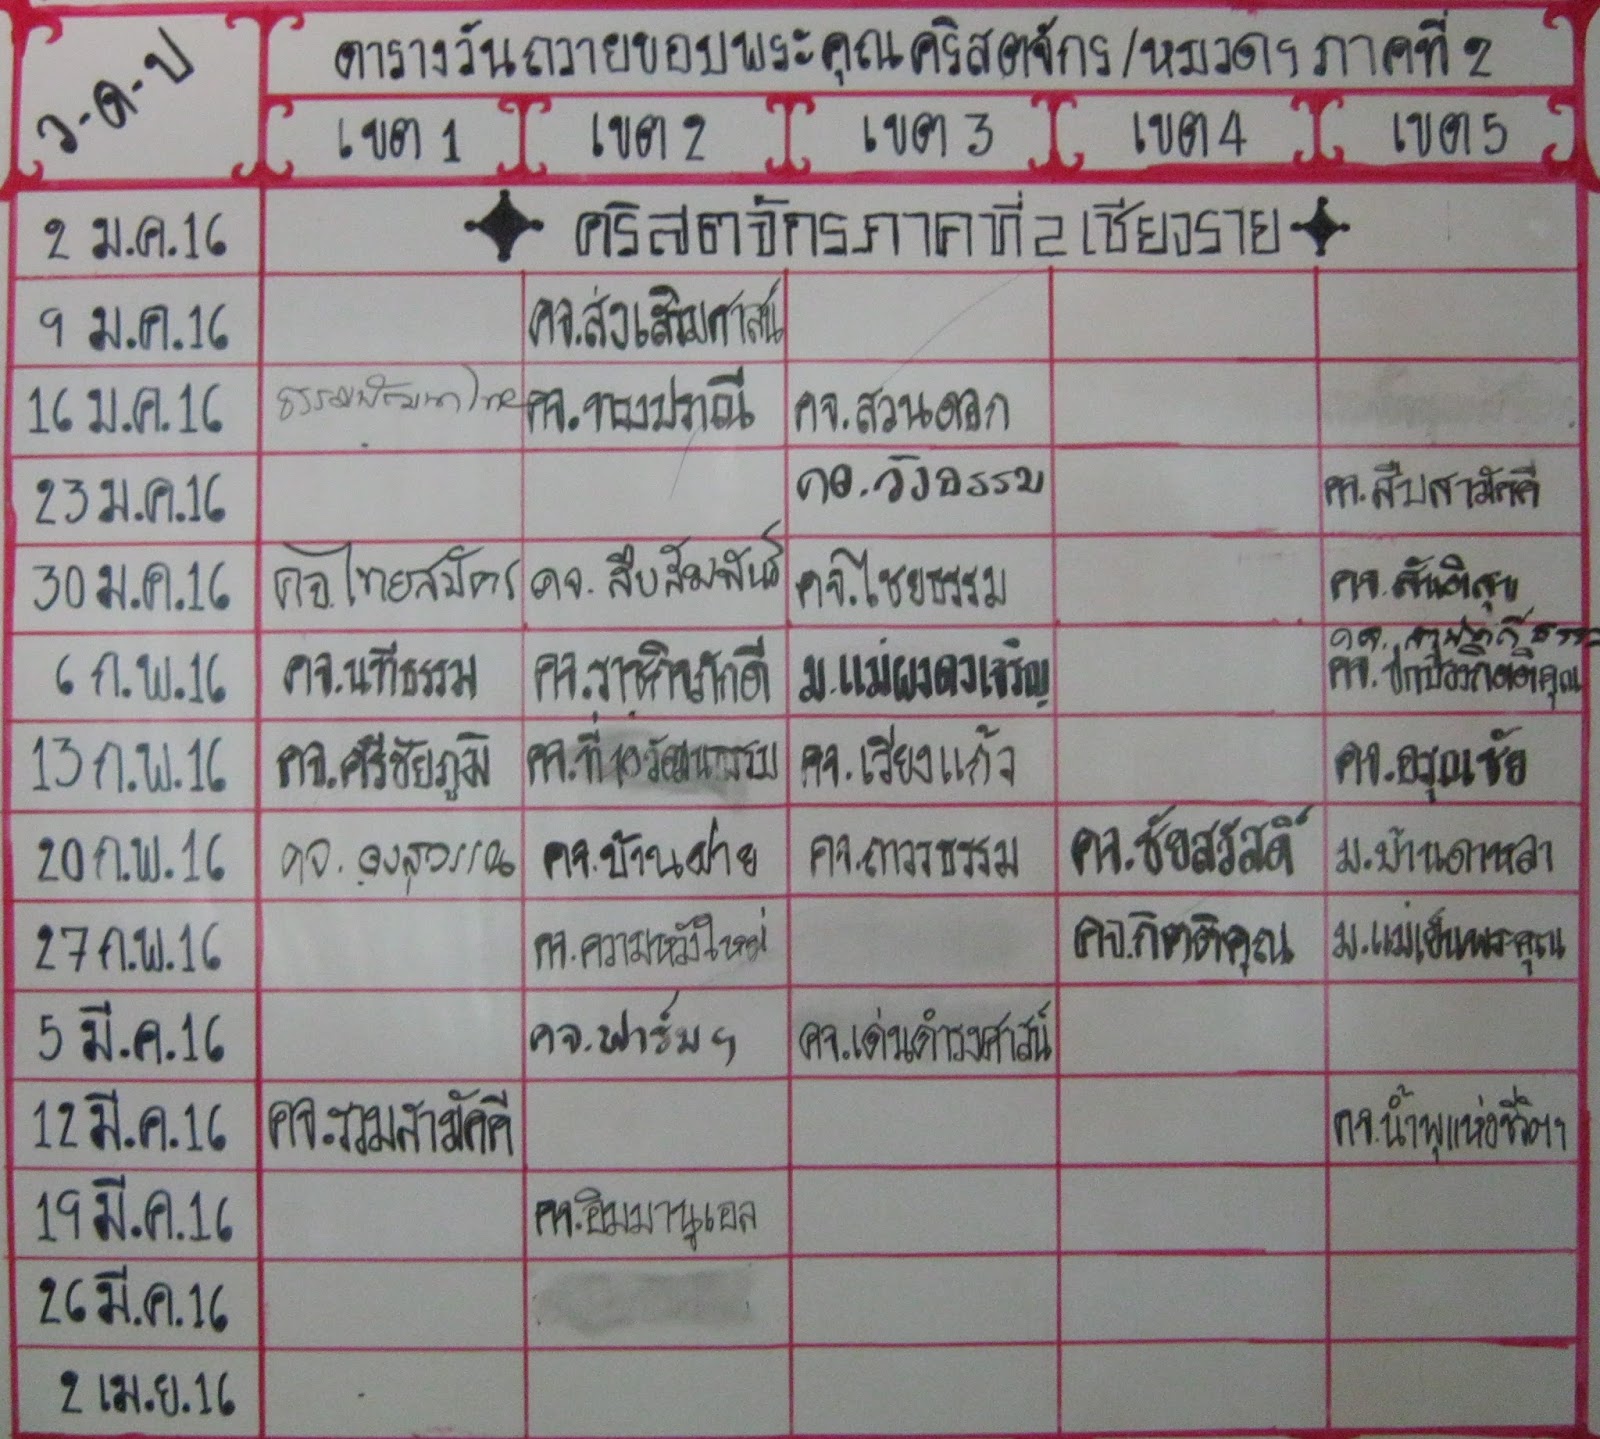 ว-ด-ป
ตารางวันถวายขอบพระคุณคริสตจักร/หมวดฯ ภาคที่ 2
เขต 1 เขต 2 เขต 3 เขต 4 เขต 5
2 ม.ค.16 คริสตจักรภาคที่ 2 เชียงราย
9 ม.ค.16 คจ.ส่งเสริมศาสน์
16 ม.ค.16 คจ.ทองปราณี คจ.สวนดอก
23 ม.ค.16 คจ.วังธรรม คจ.สืบสามัคคี
30 ม.ค.16 คจ.ไทยสมัคร คจ.สืบสัมพันธ์ คจ.ไชยธรรม คจ.สันติสุข
6 ก.พ.16 คจ.นทีธรรม คจ.ราชกิจภักดี ม.แม่ผงดวงเจริญ คจ.ปกป้องกิตติคุณ
13 ก.พ.16 คจ.ศรีชัยภูมิ คจ.เวียงแก้ว คจ.อรุณชัย
20 ก.พ.16 คจ. คจ.บ้านฝาย คจ.ถาวรธรรม คจ.ชัยสวัสดิ์ ม.บ้านดาหลา
27 ก.พ.16 คจ.ความหวังใหม่ คจ.กิตติคุณ ม.แม่เย็นพระคุณ
5 มี.ค.16 คจ.ฟาร์มฯ คจ.เด่นดำรงศาสน์
12 มี.ค.16 คจ.รวมสามัคคี คจ.น้ำพุแห่งชีวิตฯ
19 มี.ค.16 คจ.อิมมานูเอล
26 มี.ค.16
2 เม.ย.16